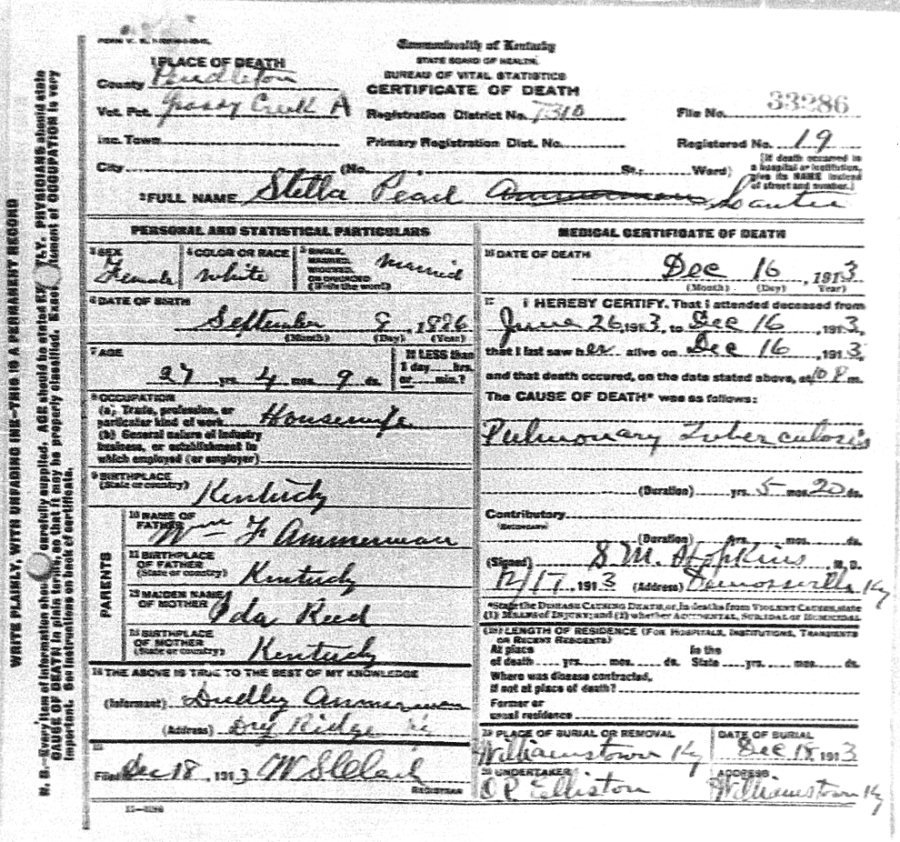 Commonwealth of Kentucky
STATE BOARD OF HEALTH
BUREAU OF VITAL STATISTICS
CERTIFICATE OF DEATH
1 PLACE OF DEATH
County Pendleton
Vot. Pct. Grassy Creek A
Registration District No. 1310
File No. 33286
Inc. Town
Primary Registration Dist. No.
Registered No. 19
City (No. St.; Ward)
[If death occurred in a hospital or institution, give its NAME instead of street and number.]
2 FULL NAME Stella Pearl Ammerman
PERSONAL AND STATISTICAL PARTICULARS
3 SEX Female
4 COLOR OR RACE White
5 SINGLE, MARRIED, WIDOWED, OR DIVORCED (Write the word) Married
6 DATE OF BIRTH
September 8, 1886
(Month) (Day) (Year)
7 AGE
27 yrs. 4 mos. 9 ds.
If LESS than 1 day hrs. or min.?
8 OCCUPATION
(a) Trade, profession, or particular kind of work Housewife
(b) General nature of industry business, or establishment in which employed (or employer)
9 BIRTHPLACE
(State or country) Kentucky
PARENTS
10 NAME OF FATHER Wm F Ammerman
11 BIRTHPLACE OF FATHER (State or country) Kentucky
12 MAIDEN NAME OF MOTHER Ida Reed
13 BIRTHPLACE OF MOTHER (State or country) Kentucky
14 THE ABOVE IS TRUE TO THE BEST OF MY KNOWLEDGE
(Informant) Dudley Ammerman
(Address) Dry Ridge
15
Filed Dec 18, 1913
REGISTRAR
MEDICAL CERTIFICATE OF DEATH
16 DATE OF DEATH
Dec 16, 1913
(Month) (Day) (Year)
17 I HEREBY CERTIFY, That I attended deceased from
June 26, 1913, to Dec 16, 1913,
that I last saw her alive on Dec 16, 1913,
and that death occured, on the date stated above, at 10 P. m.
The CAUSE OF DEATH* was as follows:
Pulmonary Tuberculosis
(Duration) yrs. 5 mos. 20 ds.
Contributory
(SECONDARY)
(Duration) yrs. mos. ds.
(Signed) S M Hopkins M. D.
12/17, 1913 (Address) Demossville Ky
*State the DISEASE CAUSING DEATH, or, in deaths from VIOLENT CAUSES, state
(1) MEANS OF INJURY; and (2) whether ACCIDENTAL, SUICIDAL or HOMICIDAL
18 LENGTH OF RESIDENCE (FOR HOSPITALS, INSTITUTIONS, TRANSIENTS OR RECENT RESIDENTS)
At place of death yrs. mos. ds. In the State yrs. mos. ds.
Where was disease contracted, if not at place of death?
Former or usual residence
19 PLACE OF BURIAL OR REMOVAL Williamstown Ky
DATE OF BURIAL Dec 18, 1913
20 UNDERTAKER O.P. Elliston
ADDRESS Williamstown Ky
WRITE PLAINLY, WITH UNFADING INK—THIS IS A PERMANENT RECORD
N. B.—Every item of information should be carefully supplied. AGE should be stated EXACTLY. PHYSICIANS should state
CAUSE OF DEATH in plain terms, so that it may be properly classified. Exact statement of OCCUPATION is very
important. See instructions on back of certificate.